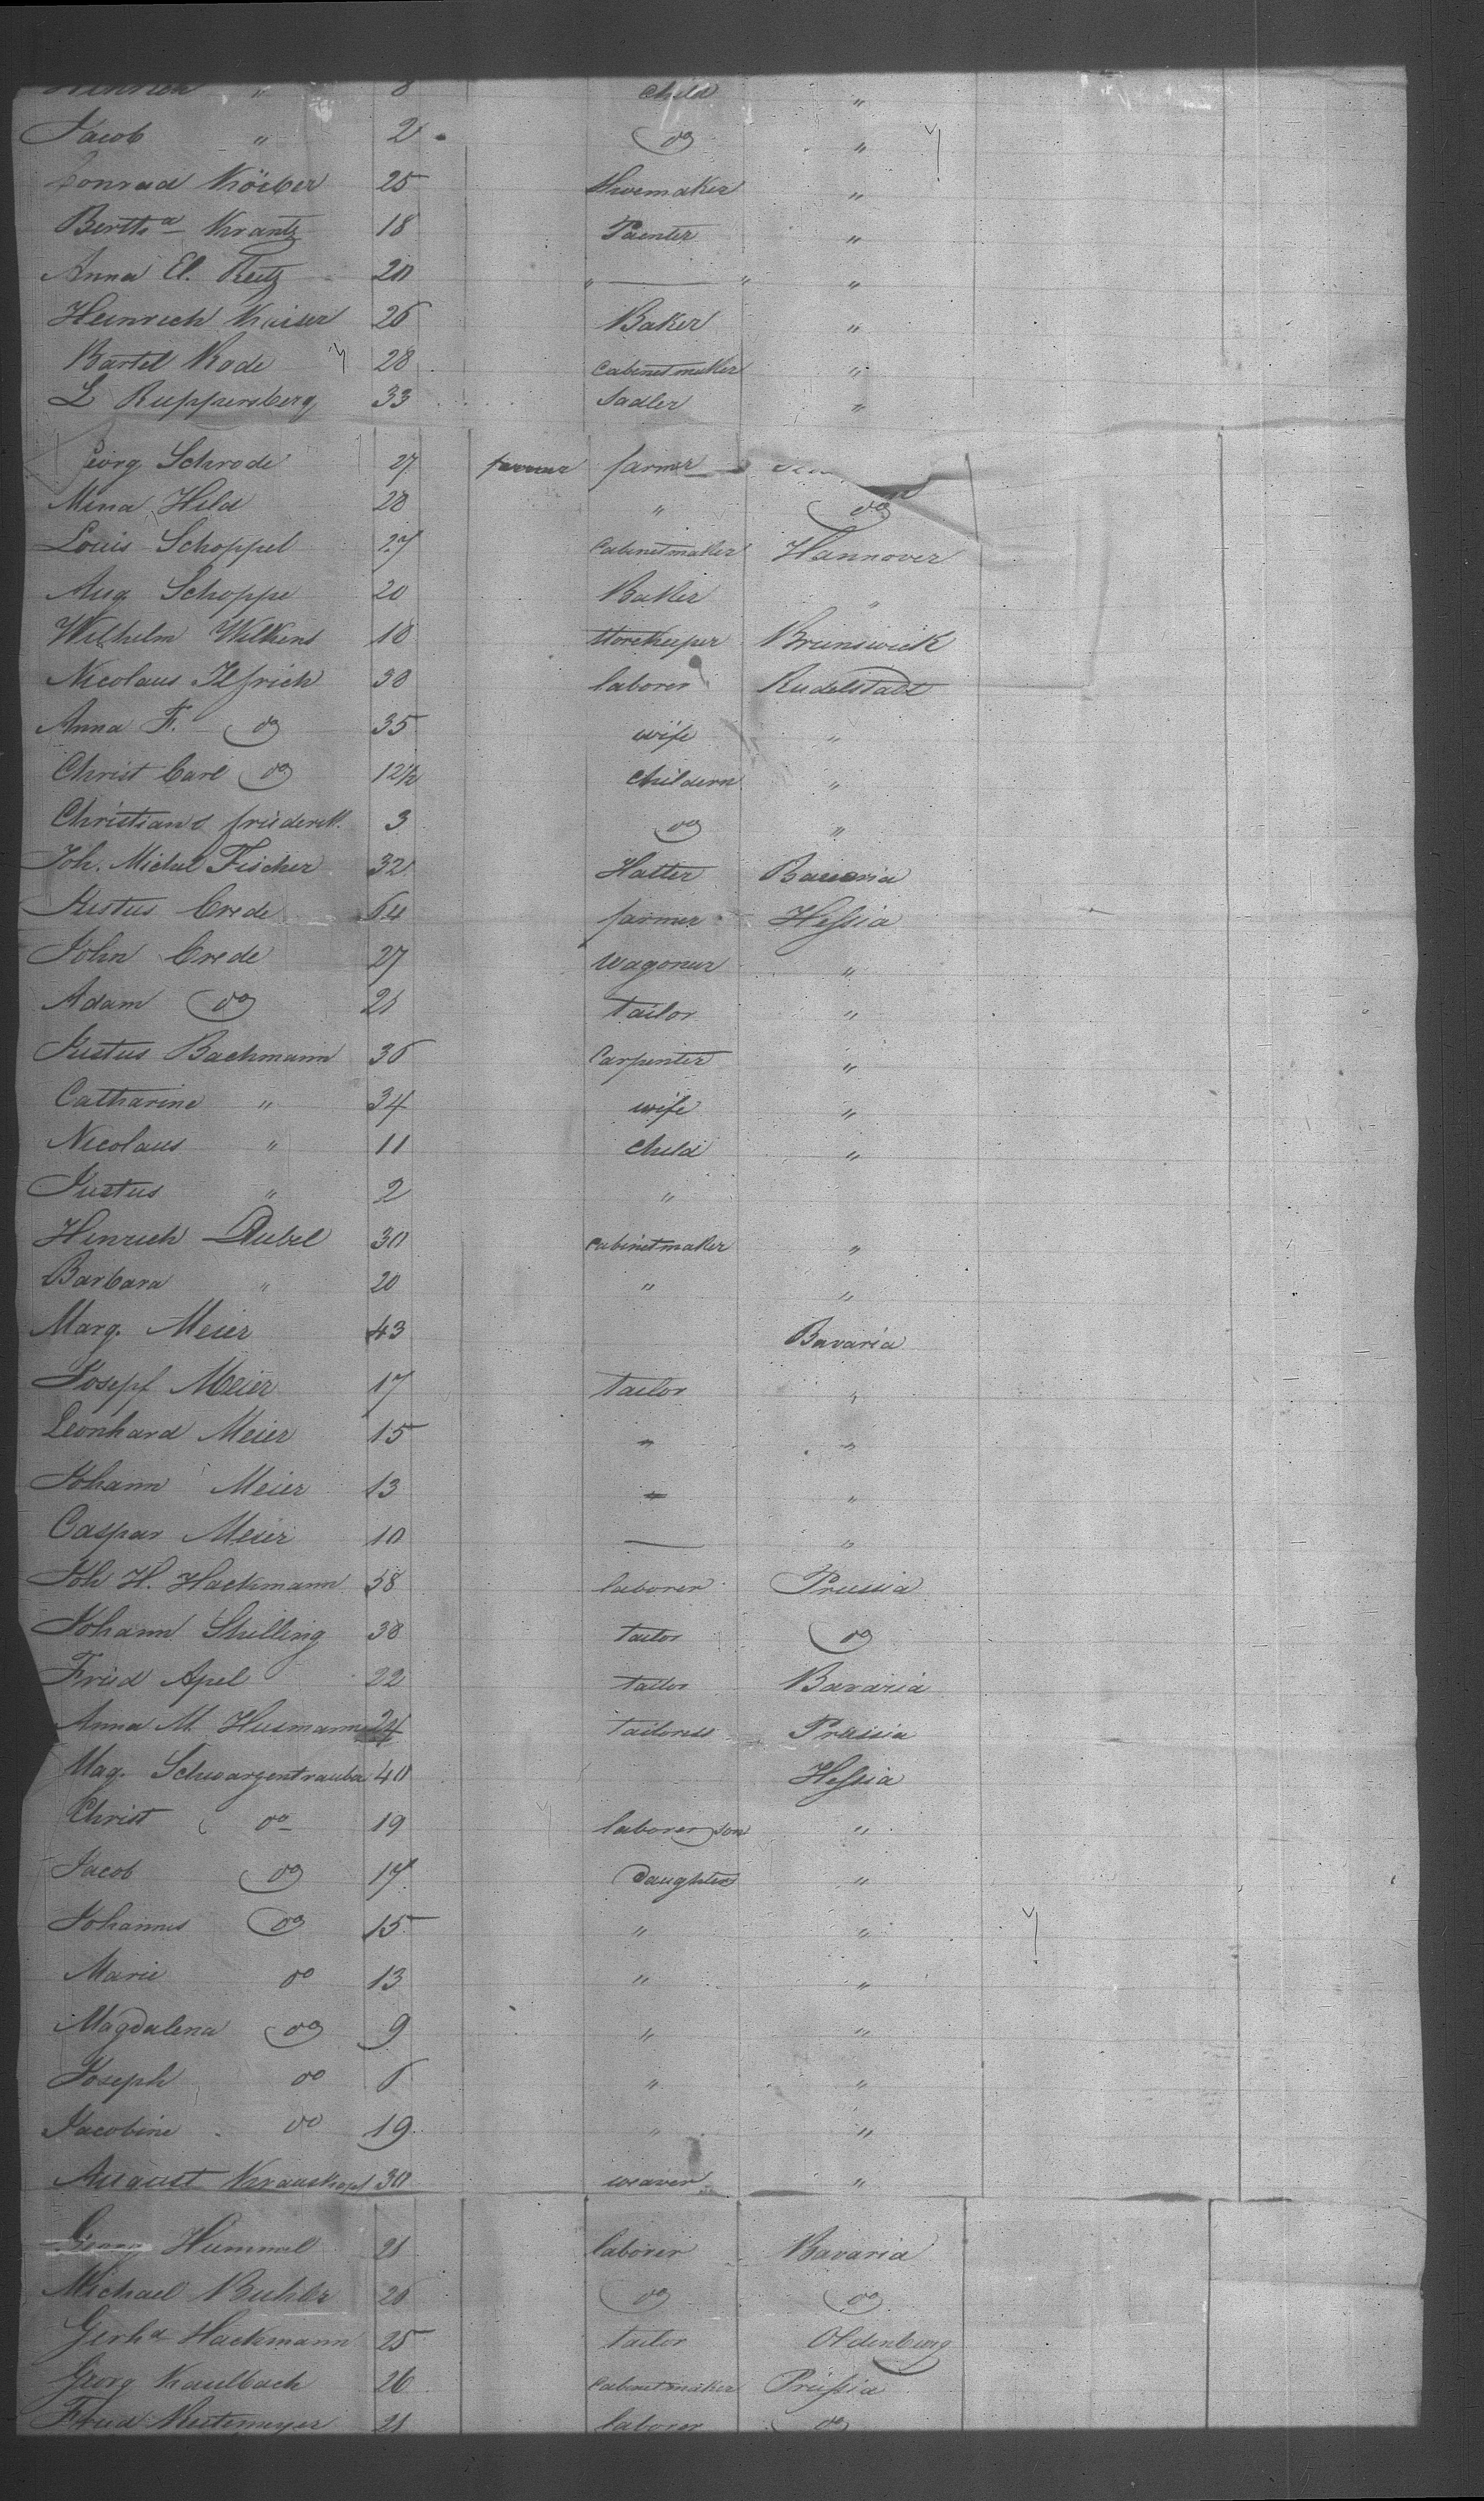 Heinrich " 8 Child "
Jacob " 2 do "
Conrad Körber 25 Shoemaker "
Bertha Krantz 18 Painter "
Anna El. Reitz 20 " — " "
Heinrich Kaiser 26 Baker "
Bartel Rode 28 Cabinetmaker "
L Ruppersberg 33 Sadler "
Georg Schrode 27 farmer farmer
Mina Hild 28 " do
Louis Schoppel 27 Cabinetmaker Hannover
Aug Schoppe 20 Baker "
Wilhelm Wilkens 18 Storekeeper Brunswick
Nicolaus Ilfrich 30 laborer Rudelstadt
Anna F. do 35 wife "
Christ Carl do 12½ Childern "
Christiane friederik. 3 do "
Joh. Michel Fischer 32 Hatter Bavaria
Justus Crede 64 farmer Hessia
John Crede 27 Wagoner "
Adam do 21 tailor "
Justus Bachmann 36 Carpenter "
Catharine " 34 wife "
Nicolaus " 11 Child "
Justus " 2 "
Hinrich Aubel 30 Cabinetmaker "
Barbara " 20 " "
Marg. Meier 43 Bavaria
Josepf Meier 17 tailor "
Leonhard Meier 15 " "
Johann Meier 13 "
Caspar Meier 10 — "
Joh H. Hackmann 38 laborer Prussia
Johann Stilling 38 tailor do
Fried Apel 22 tailor Bavaria
Anna M. Husmann 24 tailoress Prussia
Mag. Schwargentrauber 40 Hessia
Christ do 19 laborer son "
Jacob do 17 Daughters "
Johannes do 15 " "
Marie do 13 " "
Magdalena do 9 " "
Joseph do 6 " "
Jacobine do 19 " "
August Krauskopf 30 weaver "
Georg Hummel 21 laborer Bavaria
Michael Buhler 26 do do
Gerhd Hackmann 25 tailor Oldenburg
Georg Kaulbach 26 Cabinetmaker Prussia
Fried 21 laborer do